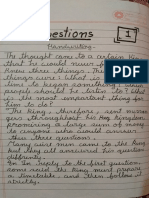 Questions
1
Handwriting
The thought came to a certain king
that he would never fail if he
knew three things. These three
things were : What is the best
time to begin something? Which
people should he listen to? What
is the most important thing for
him to do?
The King, therefore, sent
messengers throughout his kingdom,
promising a large sum of money
to anyone who would answer
these three questions.
Many wise men came to the King
but they all answered his questions
differently.
In reply to the first question,
some said the King must prepare
a timetable and then follow it
strictly.